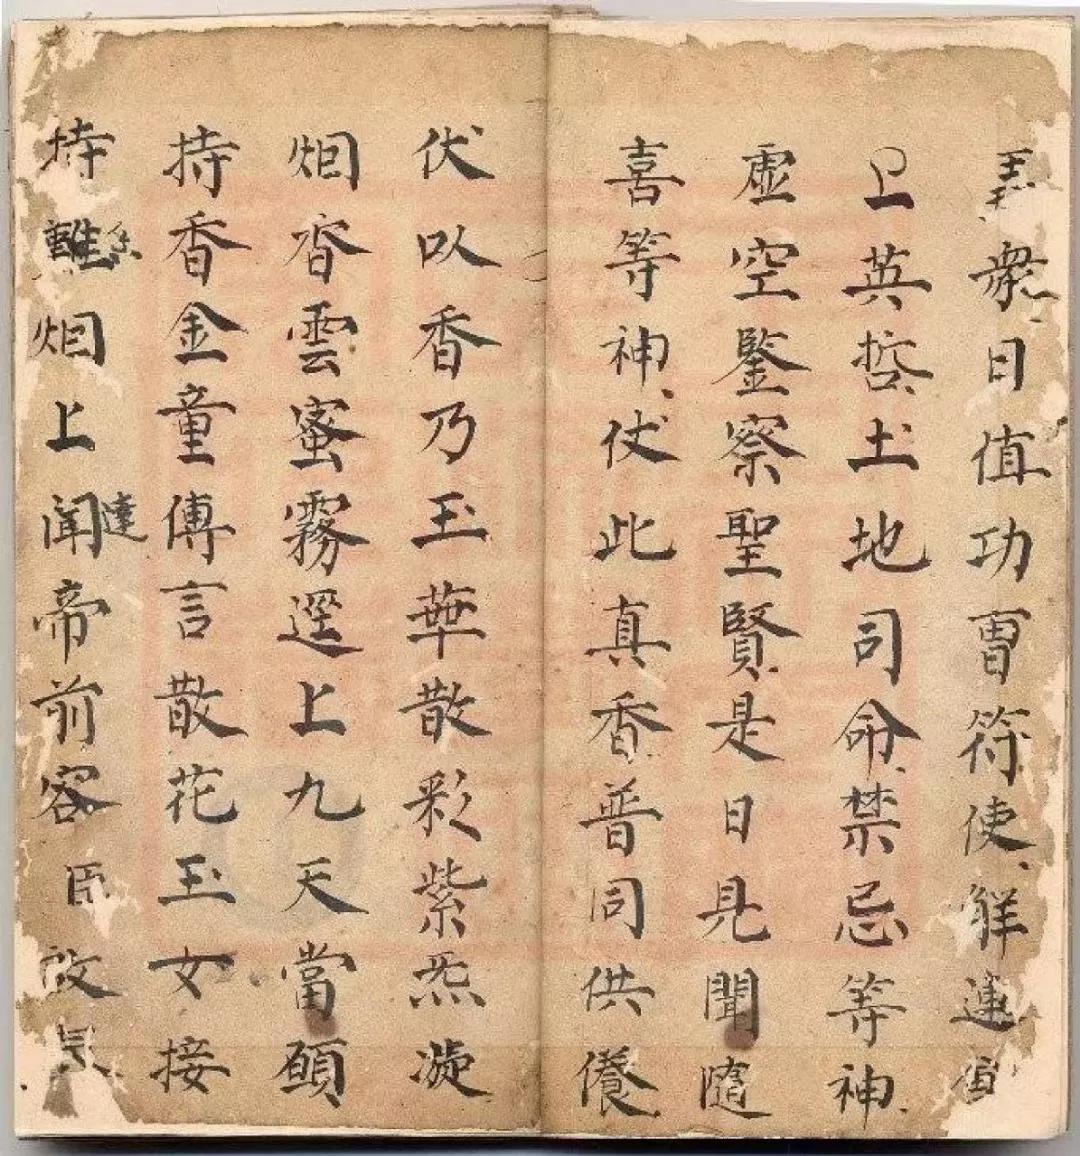 衆日值功曹符使觧運
上英哲土地司命禁忌等神
虛空鑒察聖賢是日見聞隨
喜等神仗此真香普同供養
伏以香乃玉華散彩紫炁凝
烟香雲蜜霧遥上九天當願
持香金童傳言散花玉女接
持離烟上聞達帝前容臣啟